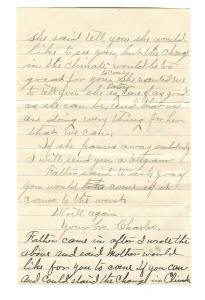 She said tell you she would
like to see you, but the change
in the climate would be too
great for you. She wanted me
to come
to tell you she is
as good
as she can be and that we
are doing every thing for her
that we can.
If she passes away suddenly
I will send you a telegram.
Father said to
you would come if it
comes to the worst.
Write again.
Your bro Charles.
Father came in after I wrote the
above and said Mother would
like for you to come if you can
and could stand the change in